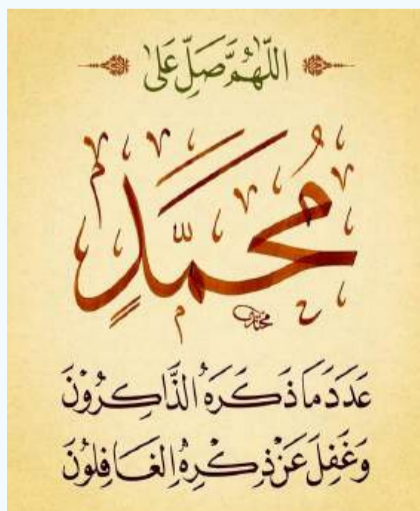 اللّٰهُمَّ صَلِّ عَلَى
مُحَمَّدٍ
عَدَدَ مَا ذَكَرَهُ الذَّاكِرُونَ
وَغَفِلَ عَنْ ذِكْرِهِ الغَافِلُونَ